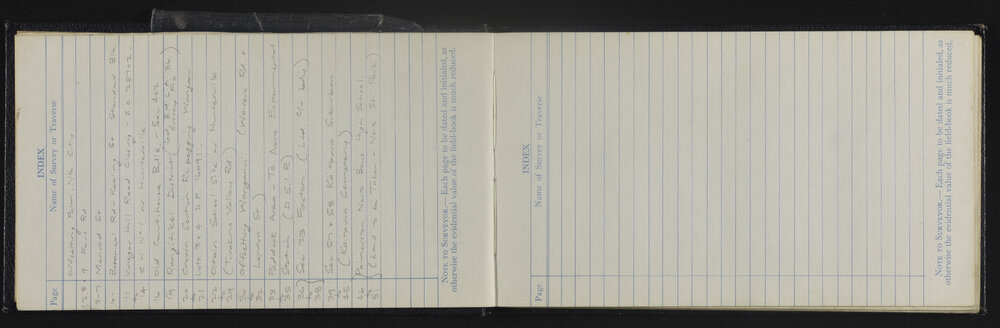 INDEX
Page Name of Survey or Traverse
Offsetting Palm. Nth City
1, 2, 8 & 9 Rd
3-7 Monrad St
10 Botanical Rd - Keeling St Standard Blk
11 to 14 Hill Road Closing S.O 25702.
S H No 1 nr Hunterville
16 Old Court house Bulls - Sec 402
19 Rangitikei District (and BM LA 36)
20 to 21 Crown Section Repegging Wanganui
Lots 3 & 4 D.P. 16091.
22 to 29 School Site nr Hunterville
(Turakina Valley Rd.)
30 to 32 Offsetting Wanganui (Warren Rd. &
London St)
33 to 35 Paddock Area - Te Awa Experimental
Station (D.S.I.R)
36 to 38 Sec 23 Foxton (Ltd. C/T bdy)
39 to 45 Sec 57 & 58 Karaana Suburban
(Karaana Cemetery)
46 to 51 Palmerston North Boys High School
(Land to be Taken - Nick St. Park)
NOTE TO SURVEYOR.— Each page to be dated and initialed, as
otherwise the evidential value of the field-book is much reduced.
INDEX
Page Name of Survey or Traverse
NOTE TO SURVEYOR.— Each page to be dated and initialed, as
otherwise the evidential value of the field-book is much reduced.